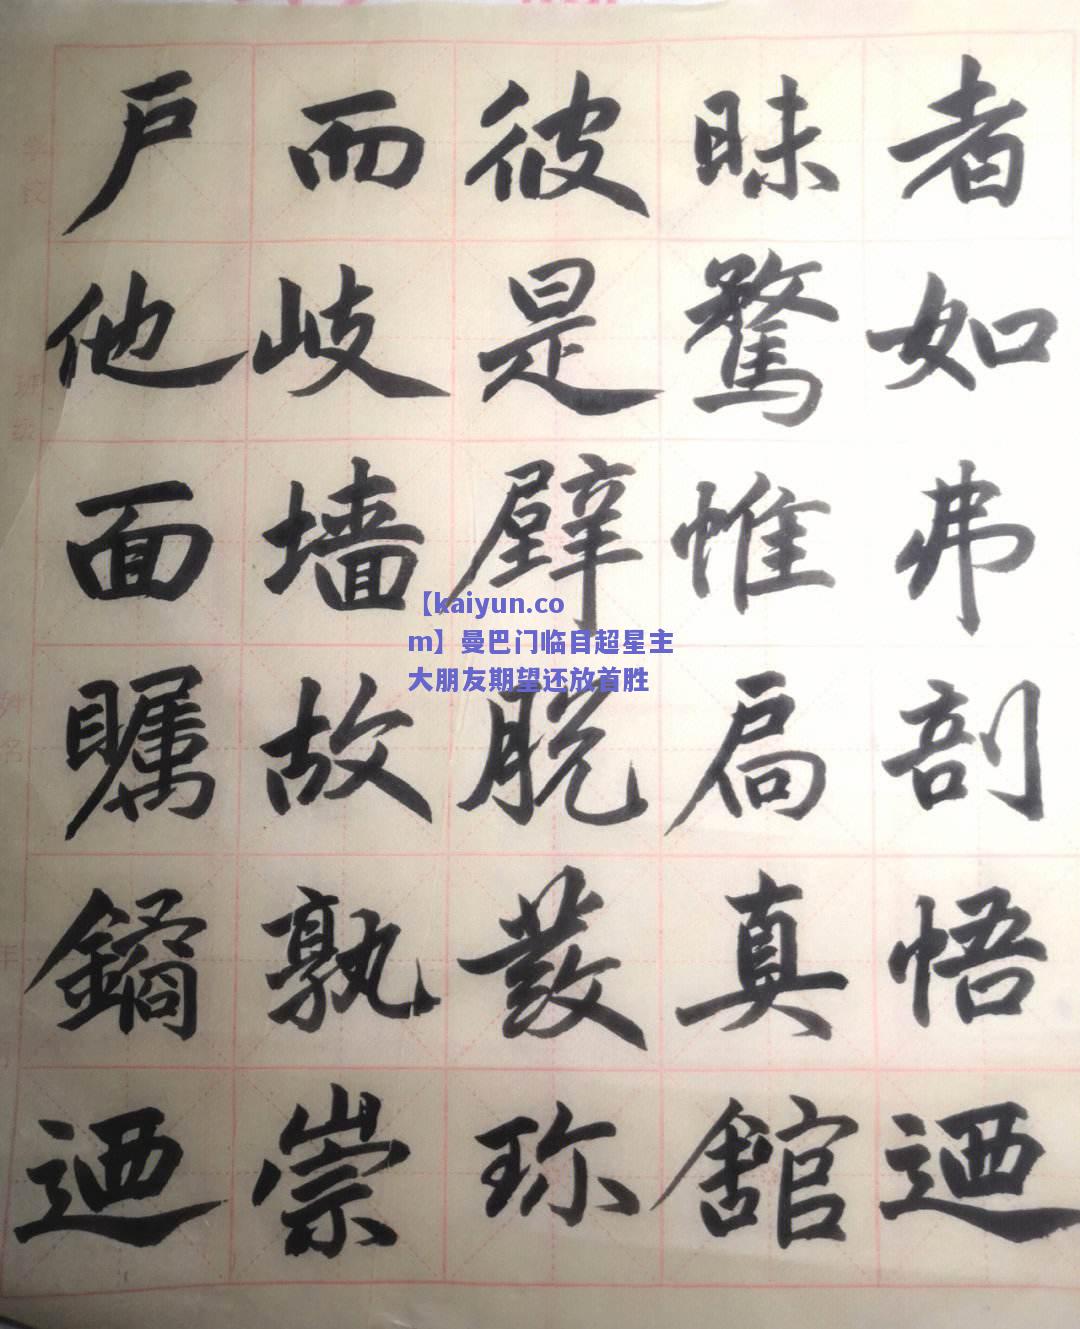 户而彼昧者
他岐是騖如
面墙壁惟弗
矚故脱扃剖
鐍孰發真悟
迺崇珎舘迺
【kaiyun.co
m】曼巴门临目超星主
大朋友期望还放首胜